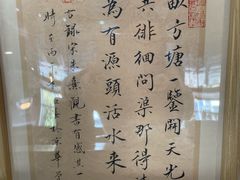 畝方塘一鑒開天光
共徘徊問渠那得清
為有源頭活水来
古録宋朱熹觀書有感其一
時壬